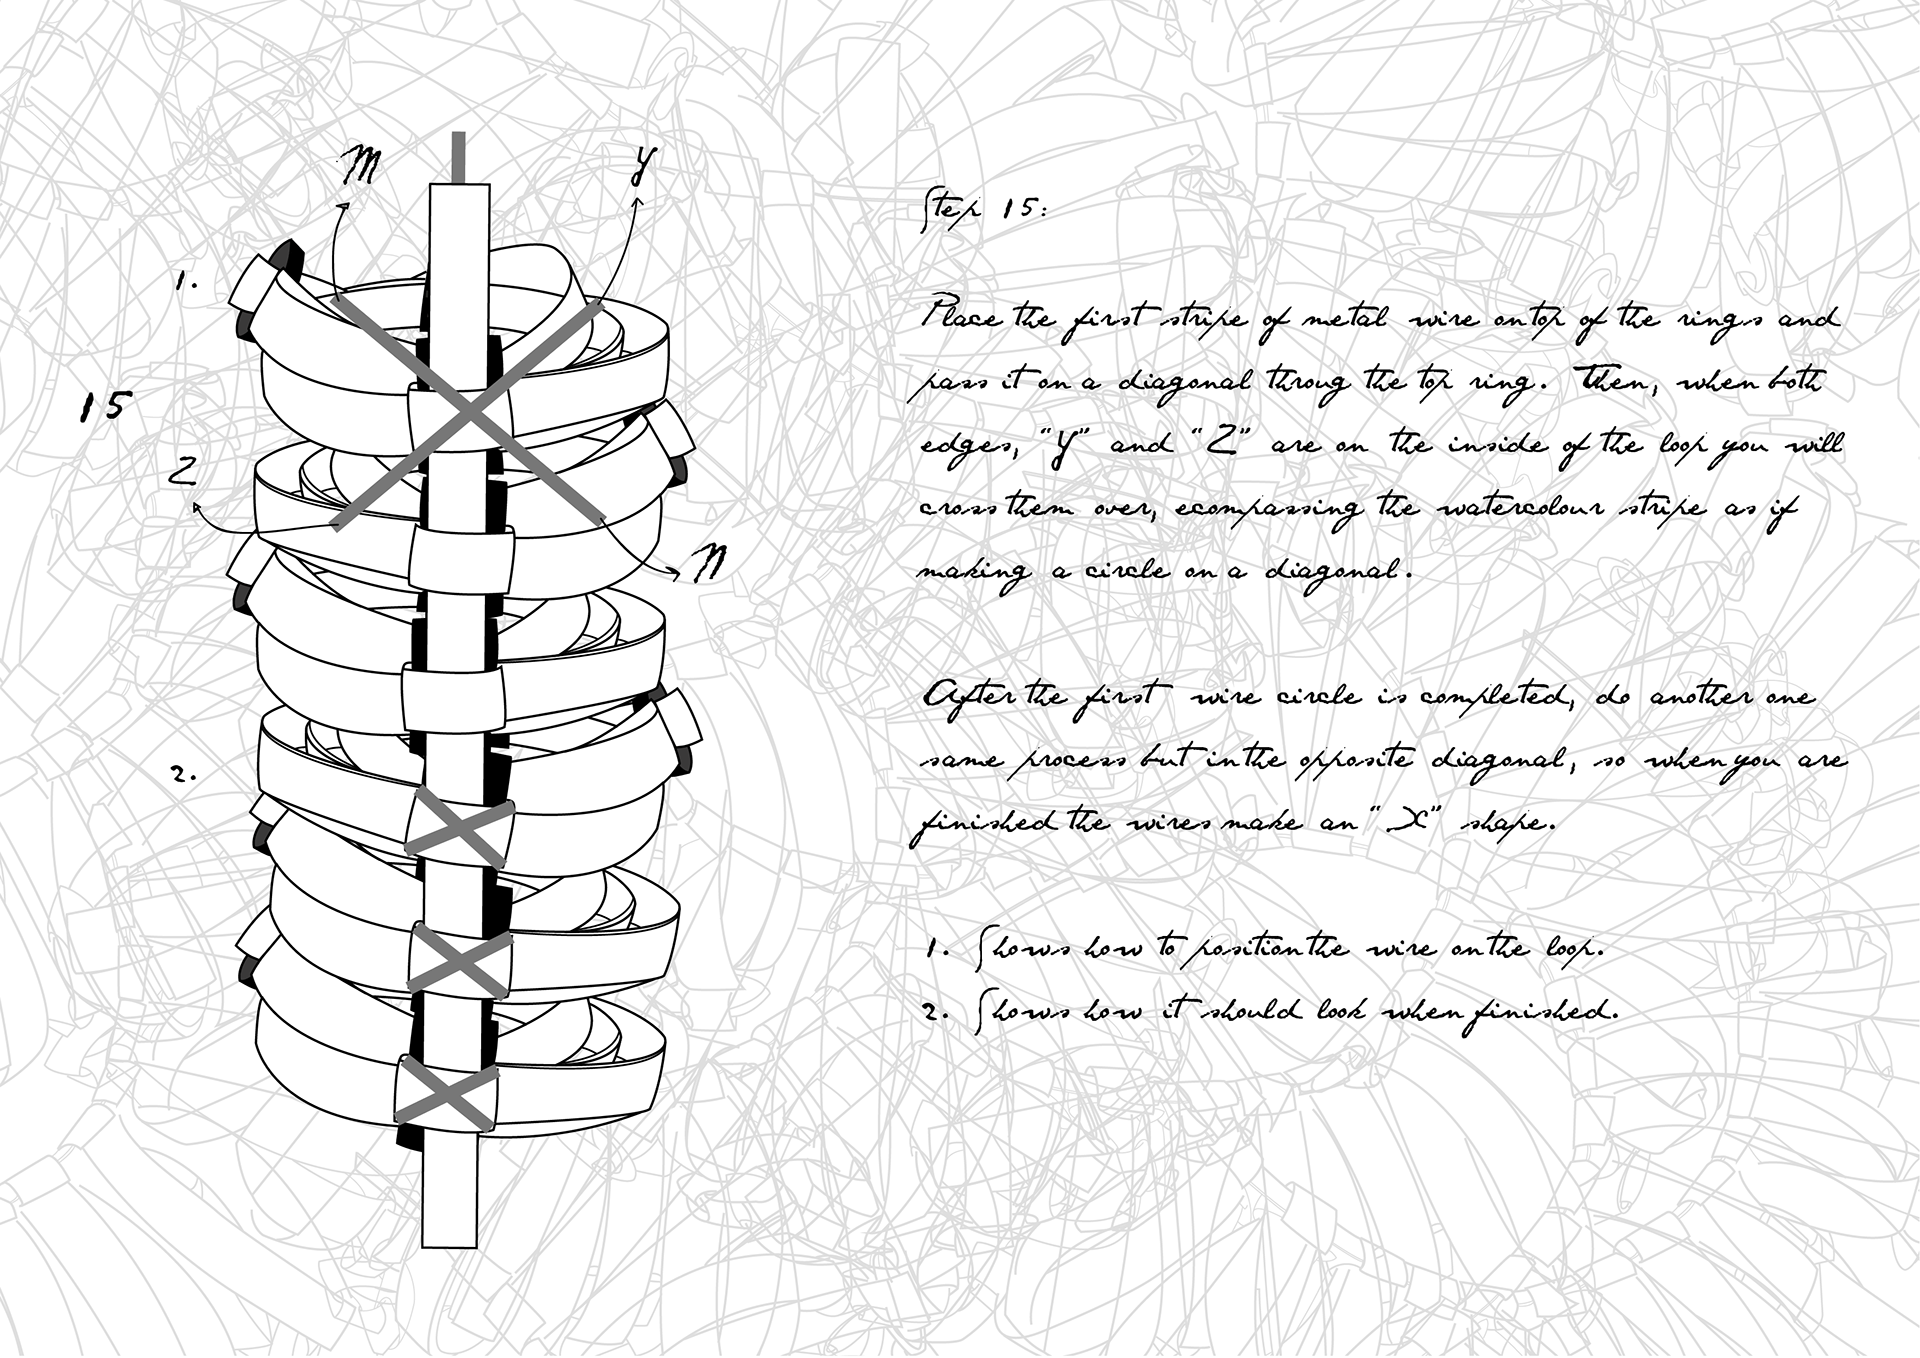 m
y
1.
15
Z
n
2.
Step 15:
Place the first stripe of metal wire on top of the rings and
pass it on a diagonal throug the top ring. Then, when both
edges, "y" and "Z" are on the inside of the loop you will
cross them over, ecompassing the watercolour stripe as if
making a circle on a diagonal.
After the first wire circle is completed, do another one
same process but in the opposite diagonal, so when you are
finished the wires make an "X" shape.
1. Shows how to position the wire on the loop.
2. Shows how it should look when finished.